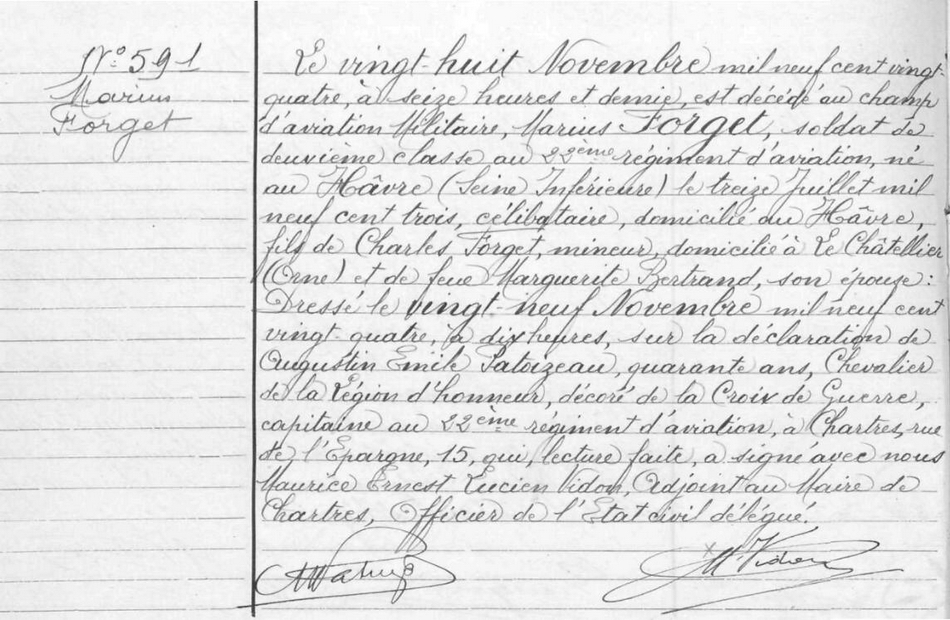 N° 591
Marius
Forget
Le vingt-huit Novembre mil neuf cent vingt-
quatre, à seize heures et demie, est décédé au champ
d'aviation Militaire, Marius Forget, soldat de
deuxième classe au 22ème régiment d'aviation, né
au Hâvre (Seine Inférieure) le treize Juillet mil
neuf cent trois, célibataire, domicilié au Hâvre,
fils de Charles Forget, mineur, domicilié à Le Châtellier
(Orne) et de feue Marguerite Bertrand, son épouse :
Dressé le vingt-neuf Novembre mil neuf cent
vingt-quatre, à dix heures, sur la déclaration de
Augustin Emile Patoizeau, quarante ans, Chevalier
de la Légion d'honneur, décoré de la Croix de Guerre,
capitaine au 22ème régiment d'aviation, à Chartres, rue
de l'Epargne, 15, qui, lecture faite, a signé avec nous
Maurice Ernest Lucien Vidon, Adjoint au Maire de
Chartres, Officier de l'Etat civil délégué.
M. Vidon